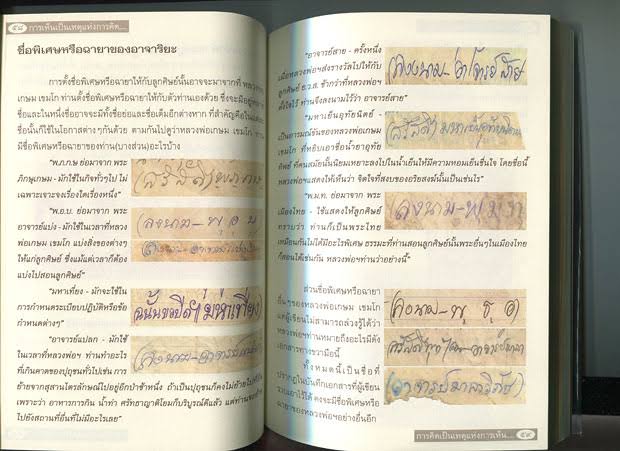 ๕๘ การเห็นเป็นเหตุแห่งการคิด...
ชื่อพิเศษหรือฉายาของอาจาริยะ
การตั้งชื่อพิเศษหรือฉายาให้กับลูกศิษย์นั้นอาจจะมาจากที่ หลวงพ่อ
เกษม เขมโก ท่านตั้งชื่อพิเศษหรือฉายาให้กับตัวท่านเองด้วย ซึ่งจะมีอยู่หลาย
ชื่อและในหนึ่งชื่ออาจจะมีทั้งชื่อย่อและชื่อเต็มอีกต่างหาก ที่สำคัญคือในแต่ละ
ชื่อนั้นก็ใช้ในโอกาสต่าง ๆกันด้วย ตามกันไปดูว่าหลวงพ่อเกษม เขมโก ท่าน
มีชื่อพิเศษหรือฉายาของท่าน(บางส่วน)อะไรบ้าง
"พ.ภ.กษ ย่อมาจาก พระ
ภิกษุเกษม - มักใช้ในกิจทั่วๆไป ไม่
เฉพาะเจาะจงเรื่องใดเรื่องหนึ่ง"
"พ.อ.บ. ย่อมาจาก พระ
อาจารย์แบ่ง - มักใช้ในเวลาที่หลวง
พ่อเกษม เขมโก แบ่งสิ่งของต่างๆ
ให้แก่ลูกศิษย์ ซึ่งแม้แต่เวลาก็ต้อง
แบ่งไปสอนลูกศิษย์"
(ลงนาม - พ อ บ
"มหาเที่ยง - มักจะใช้ใน
การกำหนดระเบียบปฏิบัติหรือข้อ
กำหนดต่างๆ"
"อาจารย์แปลก - มักใช้
ในเวลาที่หลวงพ่อฯ ท่านทำอะไร
ที่เกินคาดของปุถุชนทั่วไปเช่น การ
ย้ายจากสุสานไตรลักษณ์ไปอยู่อีกป่าช้าหนึ่ง ถ้าเป็นปุถุชนก็คงไม่ย้ายไปที่อื่น
เพราะว่า อาหารการกิน น้ำท่า ศรัทธาญาติโยมก็บริบูรณ์ดีแล้ว แต่ท่านก็ย้าย
ไปยังสถานที่อื่นที่ไม่มีอะไรเลย"
"อาจารย์สาย - ครั้งหนึ่ง
เมื่อหลวงพ่อฯส่งรางวัลไปให้กับ
ลูกศิษย์ ย.ว.ส. ช้ากว่าที่หลวงพ่อฯ
ตั้งใจไว้ ท่านจึงลงนามไว้ว่า อาจารย์สาย"
(ลงนาม - อาจารย์สาย
"มหาเย็นอุทัยนิตย์ -
เป็นอารมณ์ขันของหลวงพ่อเกษม
เขมโก ที่หยิบเอาชื่อน้ำยาอุทัย
ทิพย์ ที่คนสมัยนั้นนิยมเหยาะลงไปในน้ำเย็นให้มีความหอมเย็นชื่นใจ โดยชื่อนี้
หลวงพ่อฯแสดงให้เห็นว่า จิตใจที่สงบของอริยสงฆ์นั้นเป็นเช่นไร"
"พ.ม.ท. ย่อมาจาก พระ
เมืองไทย - ใช้แสดงให้ลูกศิษย์
ทราบว่า ท่านก็เป็นพระไทย
เหมือนกันไม่ได้มีอะไรพิเศษ ธรรมะที่ท่านสอนลูกศิษย์นั้นพระอื่นๆในเมืองไทย
ก็สอนได้เช่นกัน หลวงพ่อฯท่านว่าอย่างนี้"
ลงนาม - พ ม ท
ส่วนชื่อพิเศษหรือฉายา
อื่นๆของหลวงพ่อเกษม เขมโก
แต่ผู้เขียนไม่สามารถล่วงรู้ได้ว่า
หลวงพ่อฯท่านหมายถึงอะไรมีดัง
เอกสารทางขวามือนี้
(ลงนาม - พ ธ อ)
ทั้งหมดนี้เป็นชื่อที่
ปรากฏในบันทึกเอกสารที่ผู้เขียน
รวบรวมไว้ได้ คงจะมีชื่อพิเศษหรือ
ฉายาของหลวงพ่อฯอย่างอื่นอีก
การคิดเป็นเหตุแห่งการเห็น... ๕๙